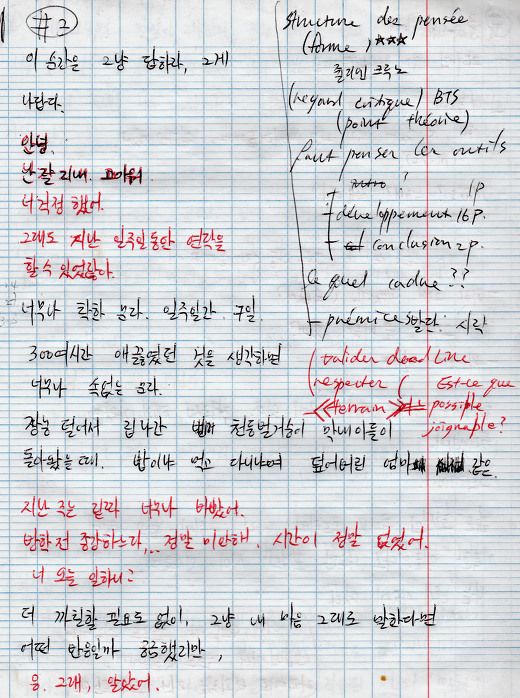 #2
이 순간을 그냥 답하라, 그게
나답다.
안녕.
난 잘 지내. 고마워
너 걱정 했어.
그래도 지난 일주일동안 연락을
할 수 있었잖다.
너무나 착한 문자. 일주일간. 9일.
300여시간 애끓였던 것을 생각하면
너무나 속없는 문자.
장농 털어서 집나간 천둥벌거숭이 막내아들이
돌아왔을 때. 밥이나 먹고 다니냐며 덮어버린 엄마 같은
지난 주는 진짜 너무나 바빴어.
방학 전 종강하느라,.. 정말 미안해. 시간이 정말 없었어.
너 오늘 일하니?
더 까칠할 필요도 없이, 그냥 내 마음 그대로 말한다면
어떤 반응일까 궁금했지만,
응. 그래, 알았어.
Structure des pensée
(forme, ***
줄리앙 크루노
(regard critique) BTS
(point théorie)
faut penser les outils
intro ? 1p
+ développement 16p.
- conclusion 2p.
ce quel cadre??
- prémices 발단. 시작
(valider deadline
respecter (
<<terrain>>
Est-ce que
possible
joignable?